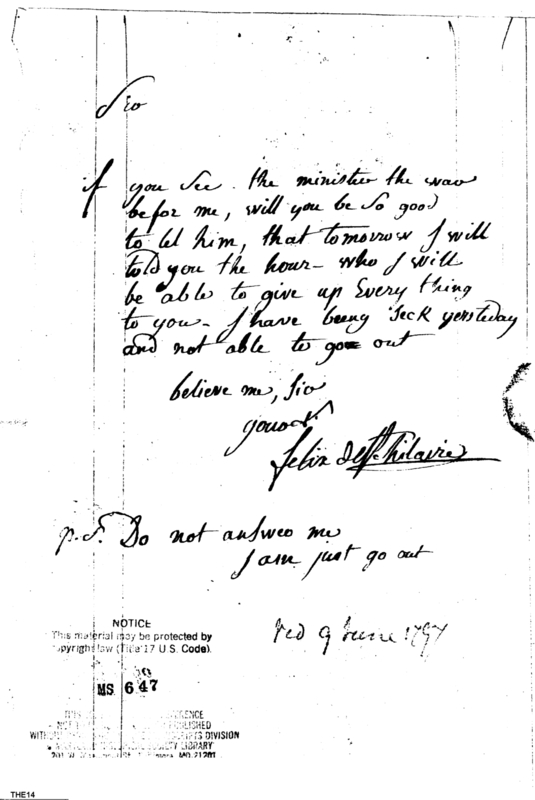 Sir
if you See the minister the war
befor me, will you be So good
to let him, that tomorrow I will
told you the hour - who I will
be able to give up Every thing
to you - I have being Seck yersteday
and not able to go out
believe me, Sir
yours
felix de St. hilaire
p.S. Do not answer me
I am just go out
red 9 June 1797
NOTICE
This material may be protected by
copyright law (Title 17 U.S. Code).
MS 647
ERENCE
NOT PUBLISHED
WITHOUT SCRIPTS DIVISION
SOCIETY LIBRARY
201 W. MD 21201
THE14